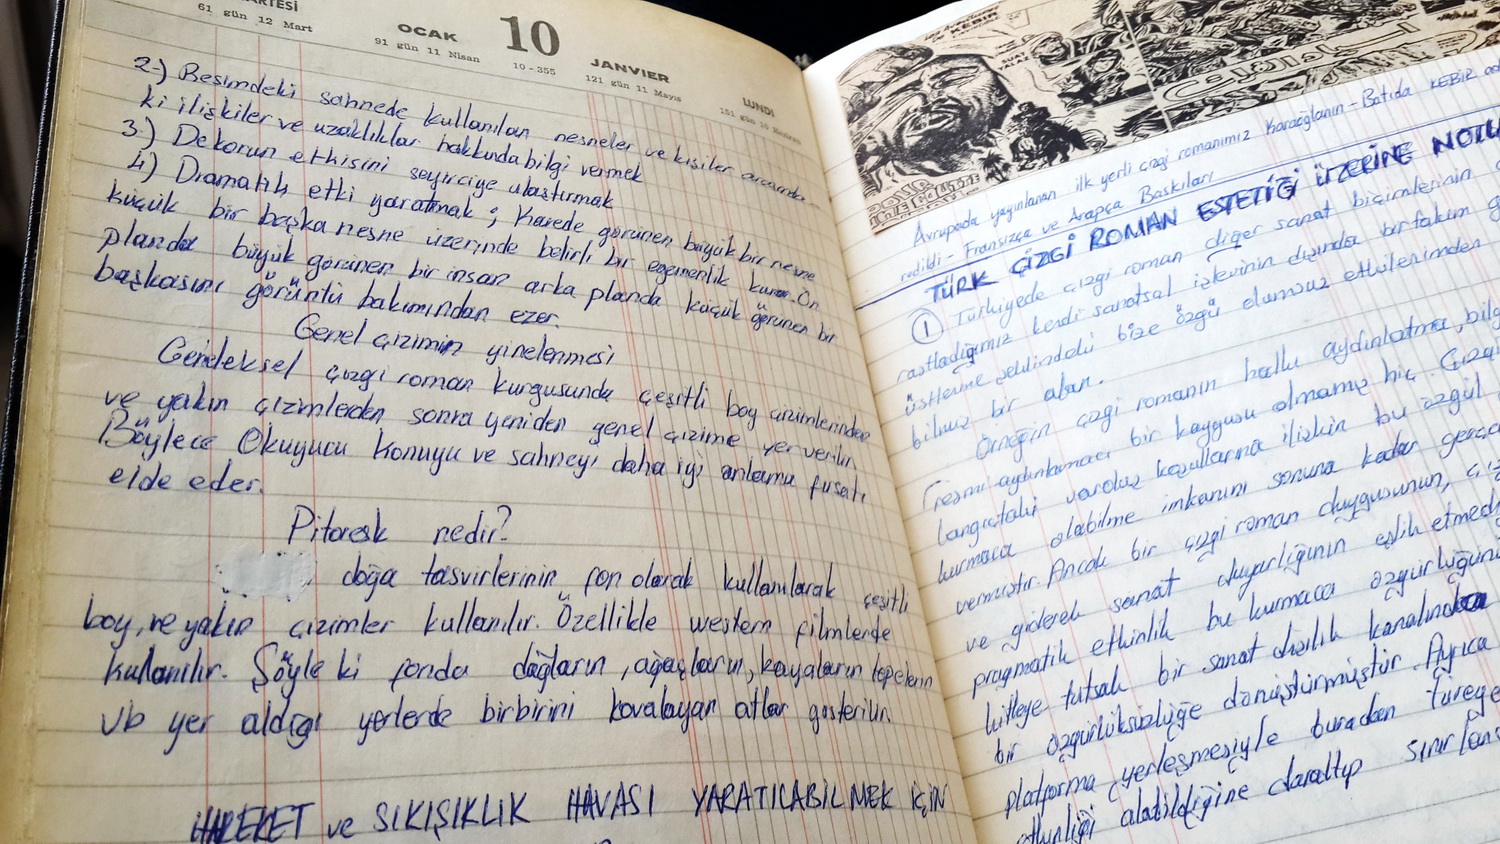 61 gün 12 Mart
OCAK
91 gün 11 Nisan
10
10-355
JANVIER
121 gün 11 Mayıs
LUNDI
2.) Resimdeki sahnede kullanılan nesneler ve kişiler arasında
ki ilişkiler ve uzaklıklar hakkında bilgi vermek
3.) Dekorun etkisini seyirciye ulaştırmak
4.) Dramatik etki yaratmak ; Karede görünen büyük bir nesne
küçük bir başka nesne üzerinde belirli bir egemenlik kurar. Ön
planda büyük görünen bir insan arka planda küçük görünen bir
başkasını görüntü bakımından ezer.
Genel çizimin yinelenmesi
Geneleksel çizgi roman kurgusunda çeşitli boy çizimlerinden
ve yakın çizimlerden sonra yeniden genel çizime yer verilir.
Böylece Okuyucu Konuyu ve sahneyi daha iyi anlama fırsatı
elde eder.
Pitoresk nedir?
doğa tasvirlerinin fon olarak kullanılarak çeşitli
boy, ve yakın çizimler kullanılır. Özellikle western filmlerde
kullanılır. Şöyle ki fonda dağların, ağaçların, kayaların tepelerin
vb yer aldığı yerlerde birbirini kovalayan atlar gösterilir.
HAREKET ve SIKIŞIKLIK HAVASI YARATICABİLMEK İÇİN
Avrupada yayınlanan ilk yerli çizgi romanımız Karaoğlanın - Batıda KEBİR
redildi - Fransızca ve Arapça Baskıları
TÜRK ÇİZGİ ROMAN ESTETİĞİ ÜZERİNE
1 Türkiyede çizgi roman diğer sanat biçimlerinin
rastladığımız kendi sanatsal işlevinin dışında bir takım
üstlerine şeklindeki bize özgü olumsuz etkilerinden
bilmiz bir alan.
Örneğin çizgi romanın halkı aydınlatma,
resmi aydınlamacı bir kaygısı olmamış hiç.
varoluş koşullarına ilişkin bu özgül
kurmaca olabilme imkanını sonuna kadar
vermiştir. Ancak bir çizgi roman duygusunun,
ve giderek sanat duyarlığının eşlik
pragmatik etkinlik bu kurmaca özgürlüğünü
kitleye tutsak bir sanat dışılık kanalında
bir özgürlüksüzlüğe dönüştürmüştür. Ayrıca
platforma yerleşmesiyle buradan
etkinliği alabildiğine daraltıp